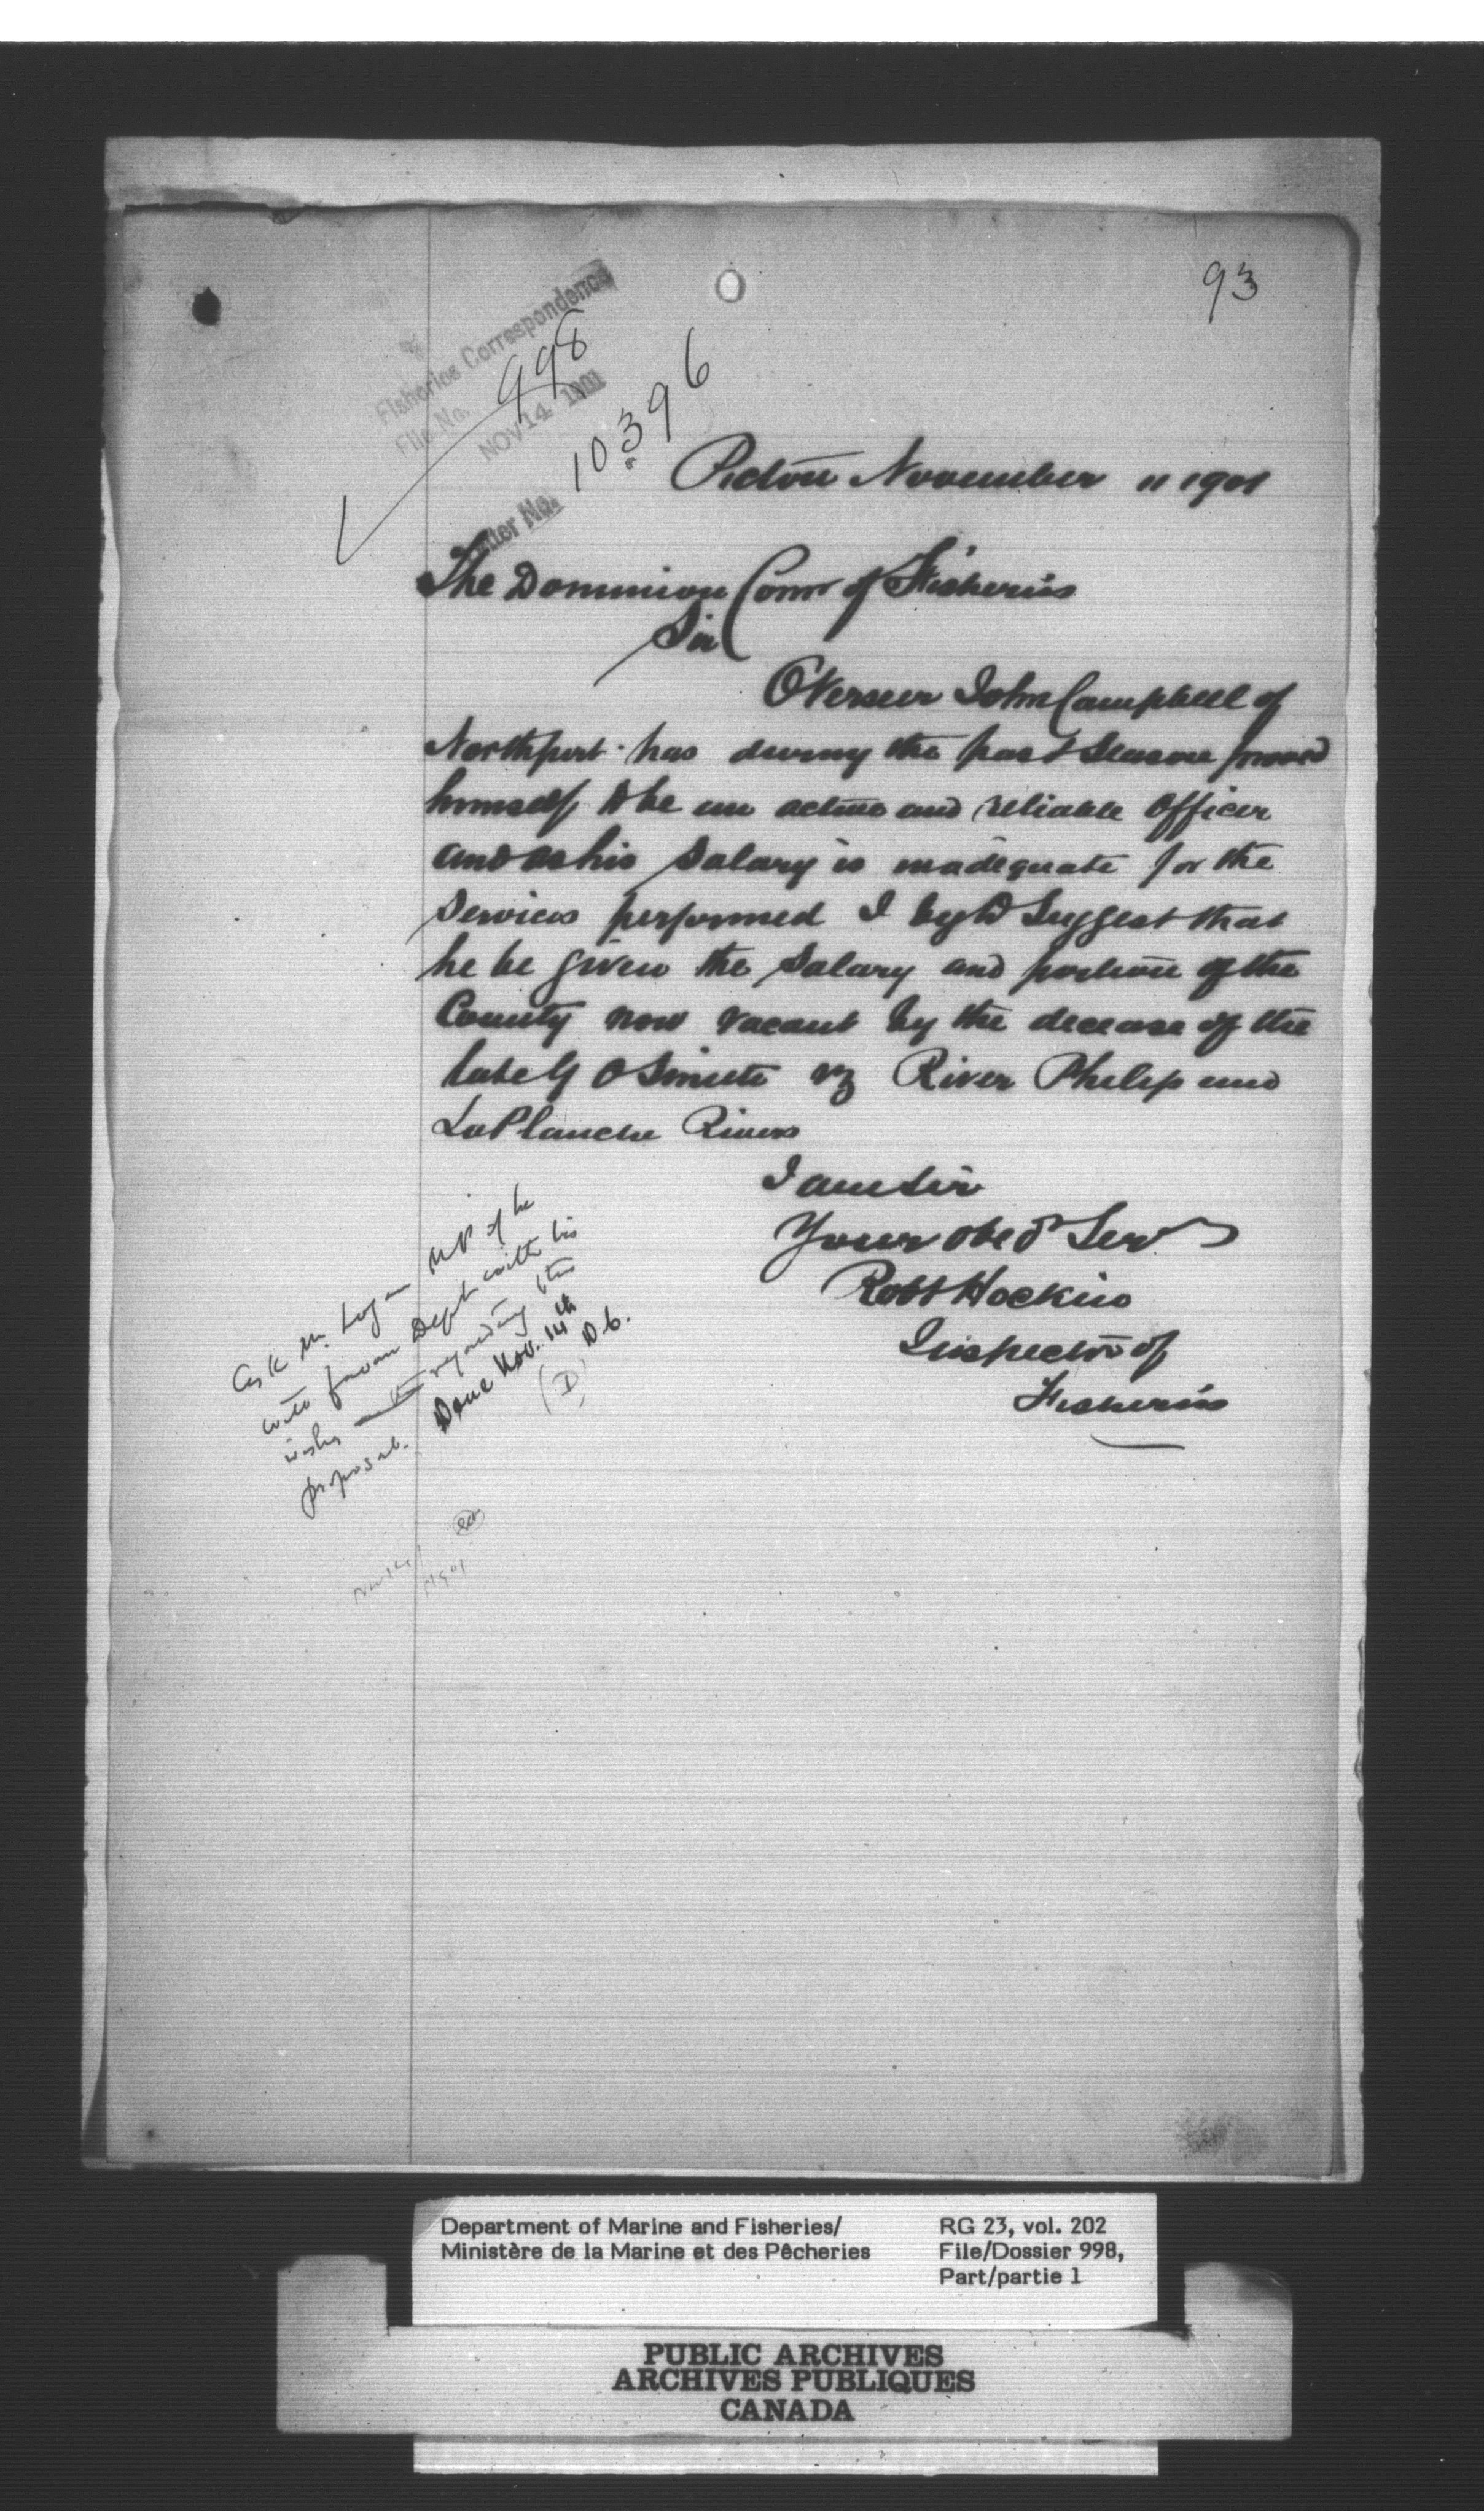 93
Fisheries Correspondence
File No. 998
NOV 14 1901
Letter No. 10396
Pictou November 11 1901
The Dominion Comr of Fisheries
Sir
Overseer John Campbell of
Northport has during the past Season proved
himself to be an active and reliable Officer
and as his Salary is inadequate for the
Services performed I beg to Suggest that
he be given the Salary and portion of the
County now vacant by the decease of the
late G O Smith vz River Philip and
LaPlanche Rivers
I am Sir
Your obed Serv
Robt Hockin
Inspector of
Fisheries
Ask Mr. Logan M.P. if he
will favour Dept. with his
wishes regarding this
proposal.
Done Nov. 14th
(D)
Nov 14/1901
Department of Marine and Fisheries/
Ministère de la Marine et des Pêcheries
RG 23, vol. 202
File/Dossier 998,
Part/partie 1
PUBLIC ARCHIVES
ARCHIVES PUBLIQUES
CANADA